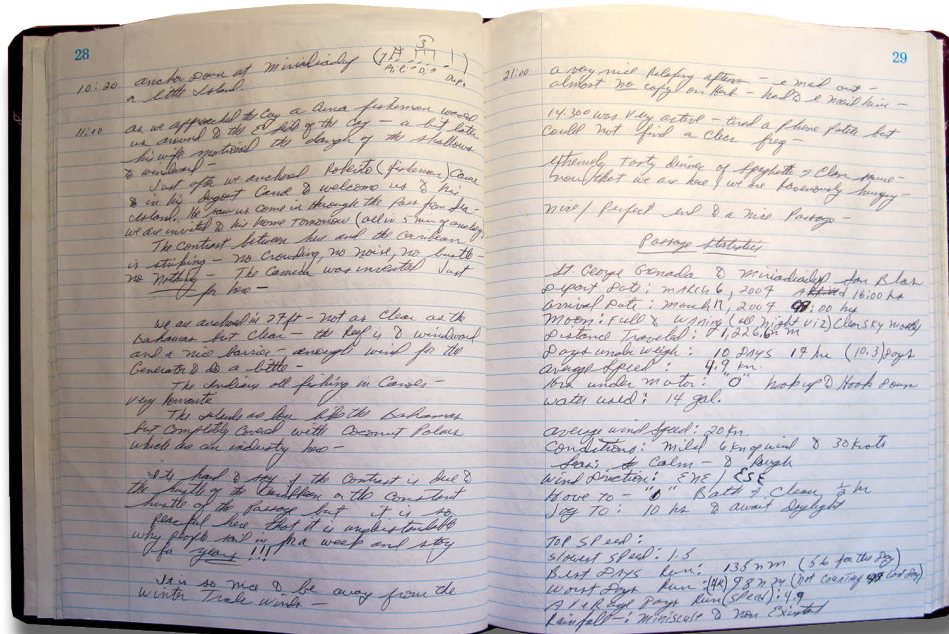 28
10:20 anchor down at Miriadiadup
a little Island.
11:00 as we approached the Cay a Cuna fisherman waved
us around to the side of the Cay - a bit later
his wife motioned the danger of the shallows
to windward -
Just after we anchored Roberto (fisherman) came
in his dugout Canoe to welcome us to his
island. He saw us come in through the Pass from Sea -
we are invited to his home tomorrow (all in 5 min of anchoring)
The Contrast between here and the Caribbean
is striking - no Crowding, no noise, no bustle -
no nothing - The Camera was invented Just
for here -
We are anchored in 27 ft - not as Clear as the
Bahamas but Clear - the Reef is to windward
and a nice barrier - enough wind for the
Generator to do a little -
The Indians all fishing in Canoes -
very romantic
The Islands are low like the Bahamas
but completely Covered with Coconut Palms
which is an industry here -
It's hard to say if the Contrast is due to
the hustle of the Caribbean or the Constant
hustle of the Passage but it is so
peaceful here that it is understandable
why people sail in for a week and stay
for years!!!
It is so nice to be away from the
Winter Trade Winds -
29
21:00 a very nice relaxing afternoon - e mail out -
almost no copy on Herb - had e mail here -
14.300 was very active - tried a phone patch but
could not find a clear freq -
extremely tasty dinner of Spaghetti & Clam sauce -
now that we are here, we are ravenously hungry
nice / Perfect end to a nice Passage -
Passage Statistics
St George Grenada to Miriadiadup San Blas
Depart Date: MARCH 6, 2009 16:00 hrs
arrival Date: March 17, 2009 :00 hrs
Moon: Full & waning (all night viz) Clear sky mostly
Distance Traveled: 1,226.6 nm
Days under weigh: 10 DAYS hr (10.3) Days
average Speed: 4.9 kn.
hrs under motor: "0" hook up to Hook Down
water used: 14 gal.
average wind speed: 20 kn.
Conditions: Mild 6 kng wind to 30 knots
Calm - to Rough
Wind Direction: ENE / ESE
Hove to - "0" Bath & Clean, 1/2 hr
Jog to: 10 hs to await Daylight
TOP Speed:
Slowest Speed: 1.5
Best Days Run: 135 nm (5.6 for the Day)
Worst Days Run: 98 nm (not counting last Day)
AVERAGE Days Run (Speed): 4.9
Rainfall -: miniscule to non Existant